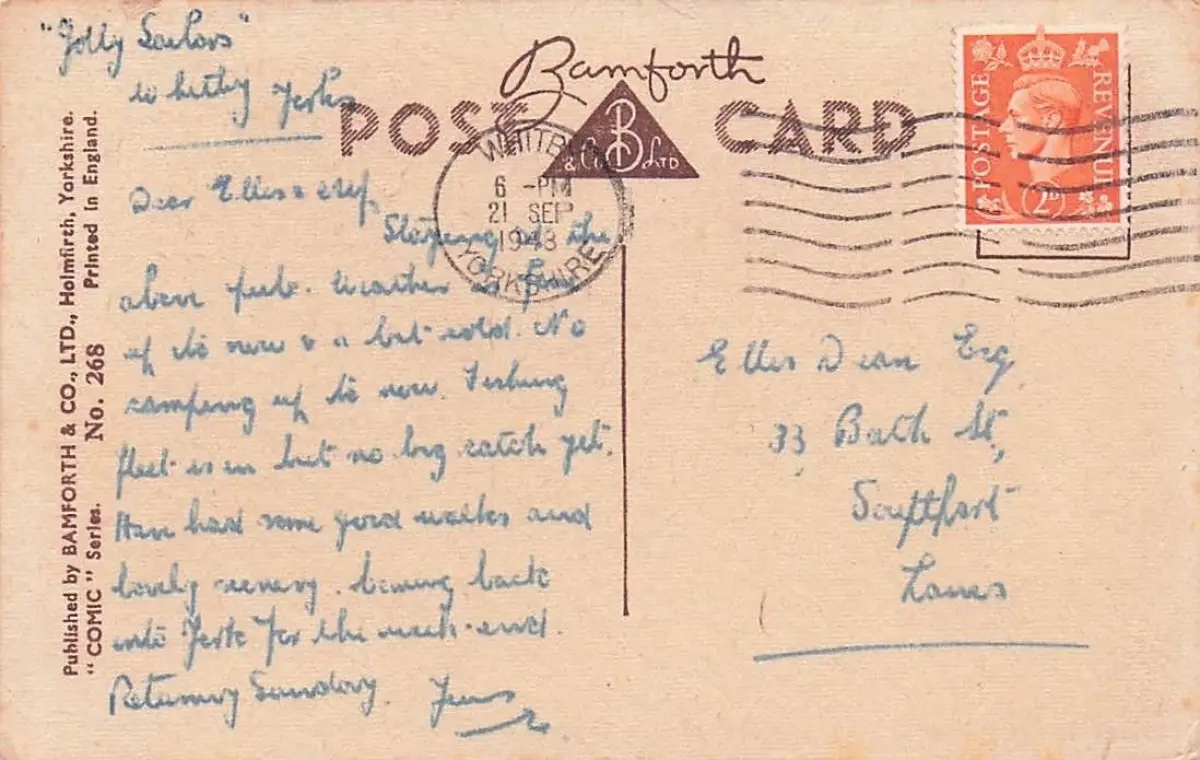 "Jolly Sailors"
Whitby Yorks
Dear Ellis &
Staying at the
above pub. Weather is fine
up to now & a bit cold. No
camping up to now. Fishing
fleet is in but no big catch yet.
Have had some good walks and
lovely scenery. Coming back
into York for the week-end.
Returning Sunday. Yours
Bamforth
POST CARD
B
& Co. LTD
WHITBY
6 - PM
21 SEP
YORKSHIRE
POSTAGE
REVENUE
2D
Ellis Dean Esq
33 Bath St,
Southport
Lancs
Published by BAMFORTH & CO., LTD., Holmfirth, Yorkshire.
"COMIC" Series. No. 268 Printed in England.